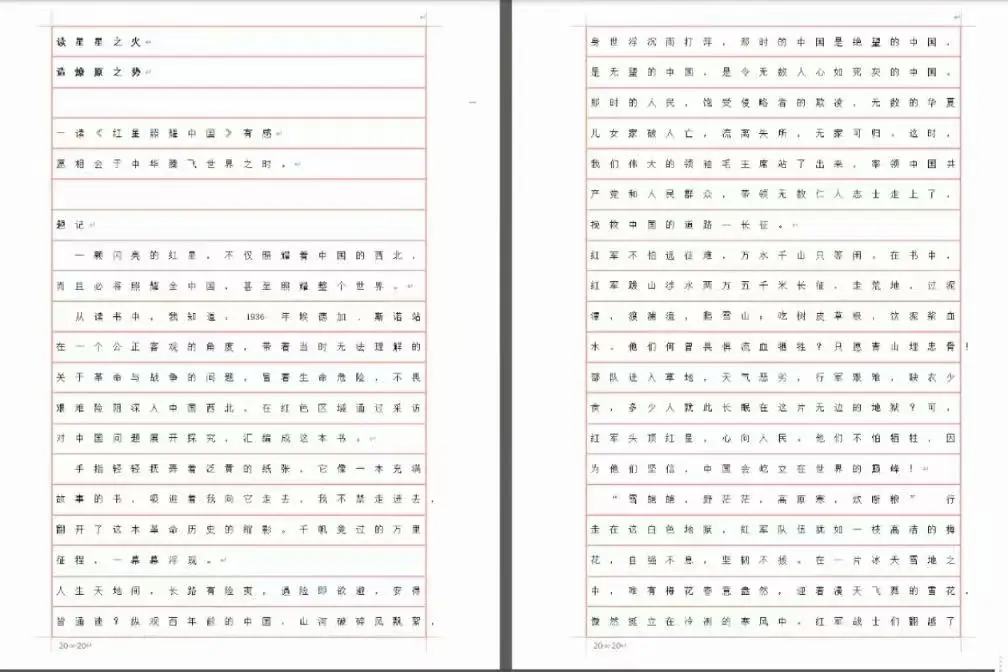 读星星之火
造燎原之势
一读《红星照耀中国》有感
愿相会于中华腾飞世界之时。
题记
一颗闪亮的红星，不仅照耀着中国的西北，
而且必将照耀全中国，甚至照耀整个世界。
从读书中，我知道：1936 年埃德加．斯诺站
在一个公正客观的角度，带着当时无法理解的
关于革命与战争的问题，冒着生命危险，不畏
艰难险阻深入中国西北，在红色区域通过采访
对中国问题展开探究，汇编成这本书。
手指轻轻抚弄着泛黄的纸张，它像一本充满
故事的书，吸进着我向它走去，我不禁走进去，
翻开了这本革命历史的缩影。千帆竞过的万里
征程，一幕幕浮现。
人生天地间，长路有险夷。遇险即欲避，安得
皆通途？纵观百年前的中国，山河破碎风飘絮，
20×20
身世浮沉雨打萍，那时的中国是绝望的中国，
是无望的中国，是令无数人心如死灰的中国。
那时的人民，饱受侵略者的欺凌，无数的华夏
儿女家破人亡，流离失所，无家可归。这时，
我们伟大的领袖毛主席站了出来，率领中国共
产党和人民群众，带领无数仁人志士走上了，
挽救中国的道路一长征。
红军不怕远征难，万水千山只等闲。在书中，
红军跋山涉水两万五千米长征，走荒地，过泥
潭，渡湍流，爬雪山；吃树皮草根，饮泥浆血
水。他们何曾畏惧流血牺牲？只愿青山埋忠骨！
部队进入草地，天气恶劣，行军艰难，缺衣少
食，多少人就此长眠在这片无边的地狱？可，
红军头顶红星，心向人民。他们不怕牺牲，因
为他们坚信，中国会屹立在世界的巅峰！
“雪皑皑，野茫茫，高原寒，炊断粮” 行
走在这白色地狱，红军队伍犹如一枝高洁的梅
花，自强不息，坚韧不拔。在一片冰天雪地之
中，唯有梅花春意盎然，迎着漫天飞舞的雪花，
傲然挺立在冷冽的寒风中。红军战士们翻越了
20×20